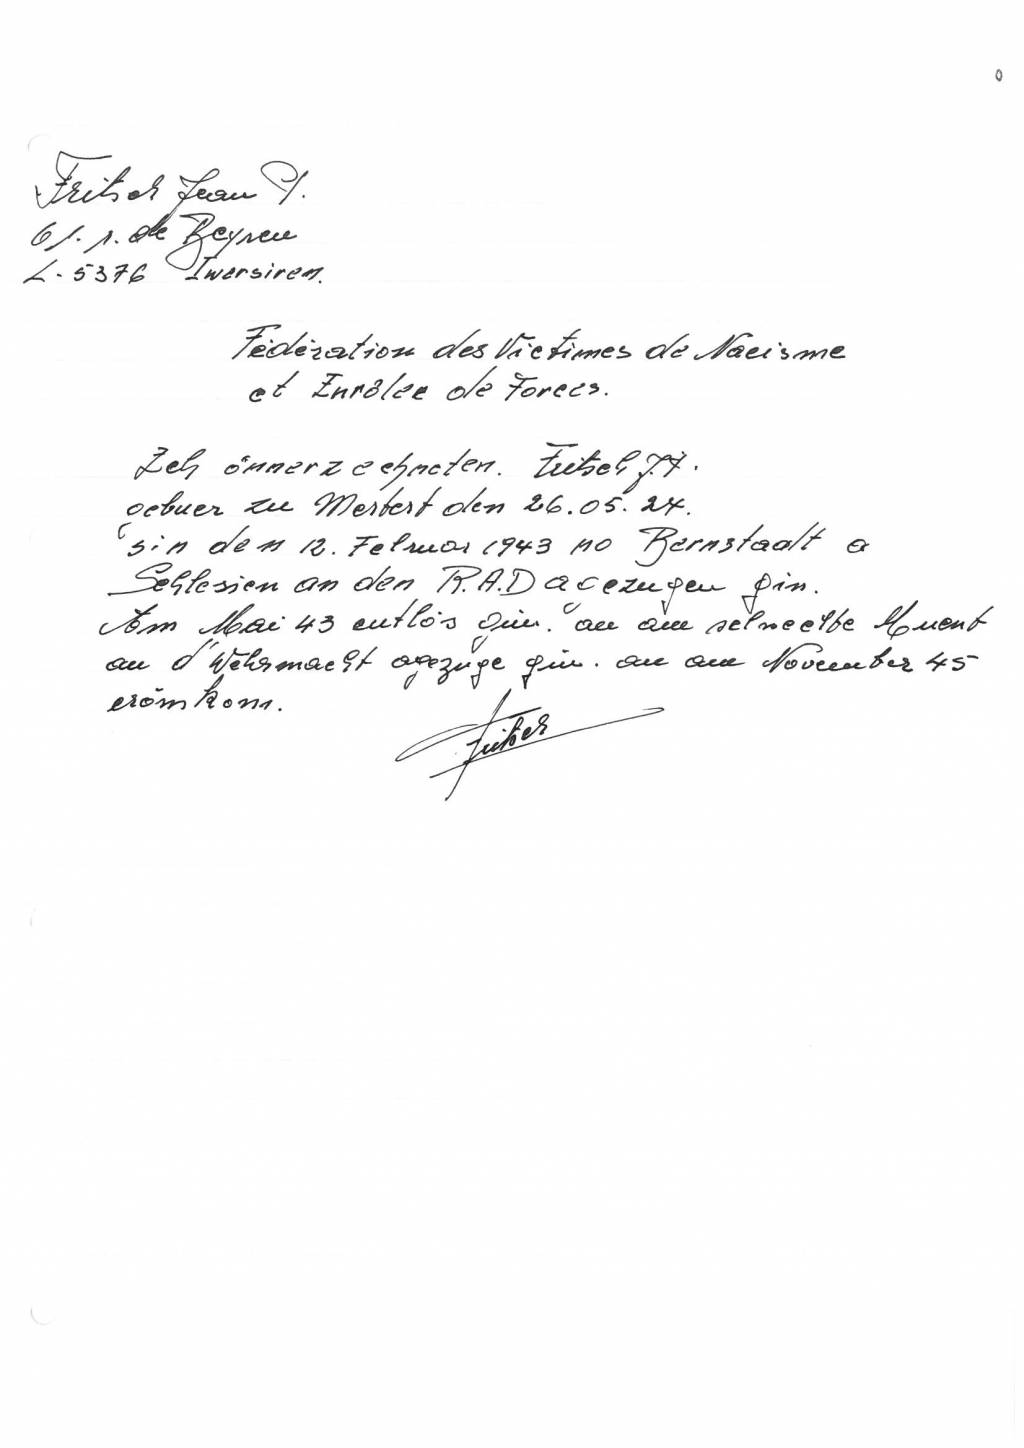 Fritsch Jean P.
61. r. de Beyren
L-5376 Iwersiren.
Fédération des Victimes de Nacisme
et Enrôlee de Forces.
Ech önnerzechneten. Fritsch J.P.
gebuer zu Mertert den 26.05.24.
sin den 12. Februar 1943 no Bernstaalt a
Schlesien an den R.A.D agezugen gin.
Am Mai 43 entlós gin. an am selweelbe Muent
an d'Wehrmacht agezuge gin. an am November 45
erömkom.
Fritsch